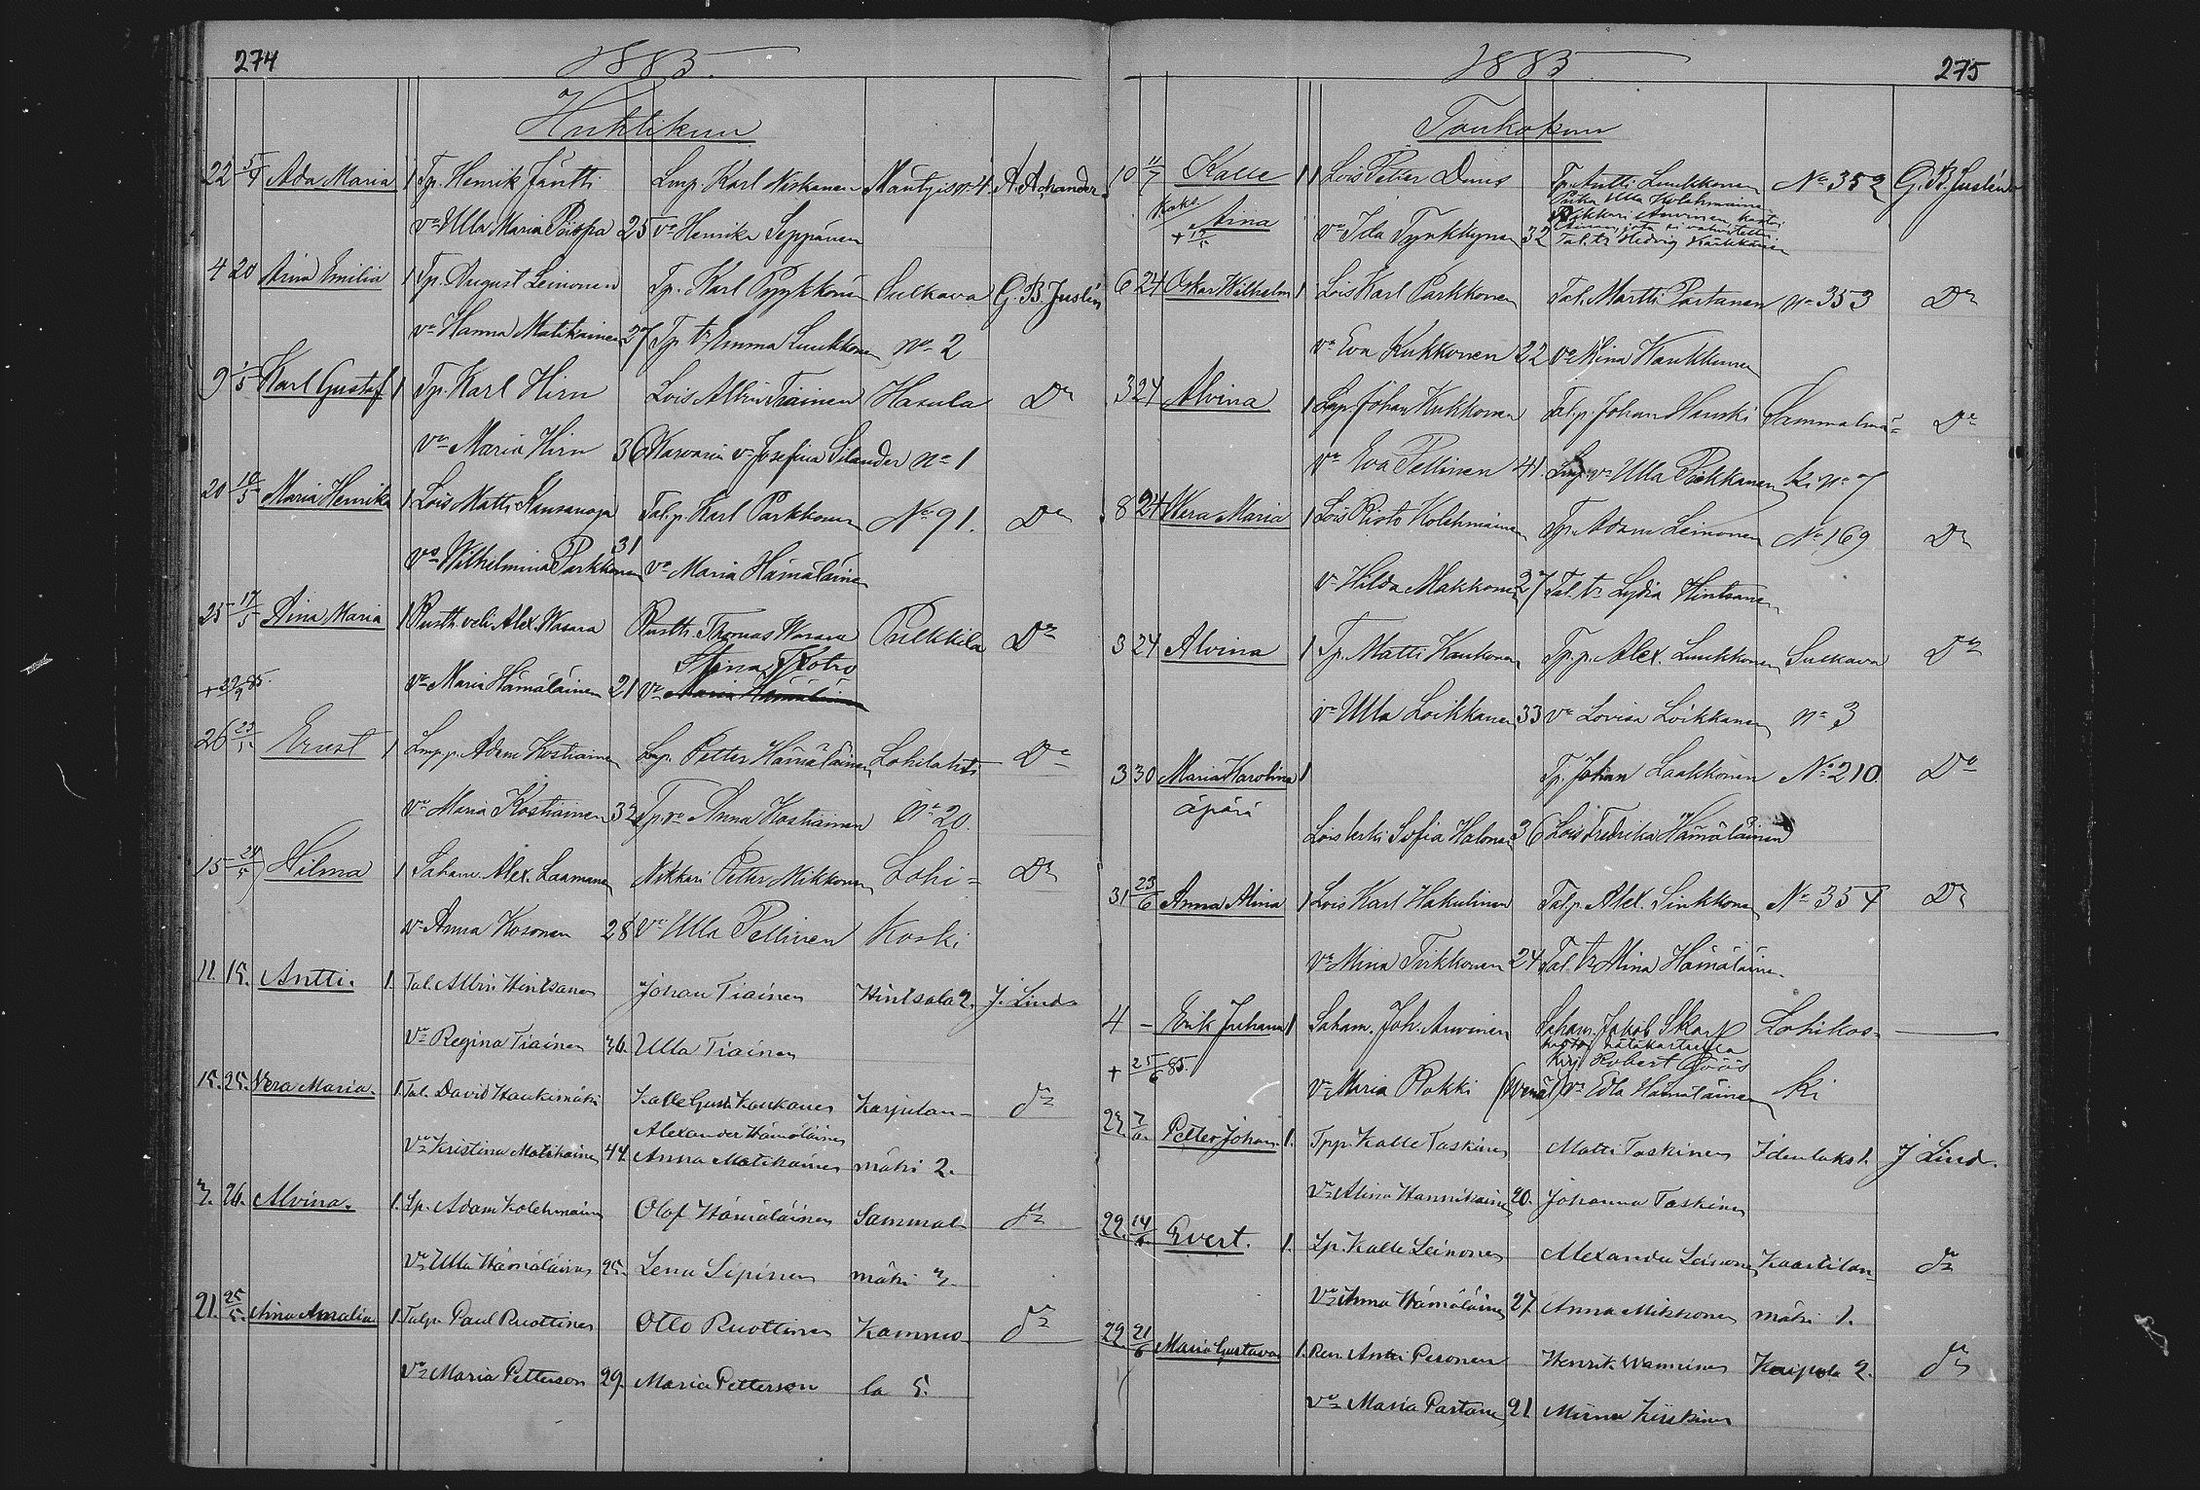 274
1883.
Huhtikuu
22 5/4 Ada Maria 1 Tp. Henrik Jäntti Lmp. Karl Niskanen Mäntys nr 4. A. Ahrander
vo Ulla Maria 25 vo Henrika Seppänen
4 20 Aina Emilia 1 Tp. August Leinonen Tp. Karl Pyykkönen Sulkava G. B. Juslén
vo Hanna Matikainen 27 Tp. tr Emma Luukkonen no 2
9 1/5 Karl Gustaf 1 Tp. Karl Hirn Lois Albin Tiainen Hasula Do
vo Maria Hirn 36 vo Josefina Silander no 1
20 12/5 Maria Henrika 1 Lois Matti Talp. Karl Parkkonen No 91. Do
vo Wilhelmina Parkkonen 31 vo Maria Hämäläinen
25 17/5 Aina Maria 1 Rusth. veli Alex. Wasara Rusth. Thomas Wasara Pulkkila Do
Stina Kotro
+ 29/9 85. vo Maria Hämäläinen 21 vo Maria Hämäläinen
26 23/5 Ernst 1 Lmp. p. Adam Kostiainen Lmp. Petter Hämäläinen Lohilahti Do
vo Maria Kostiainen 32 Tp. vo Anna Kostiainen no 20.
15 24/5 Hilma 1 Saham. Alex. Laamanen Nikkari Petter Mikkonen Lohi= Do
vo Anna Kosonen 28 vo Ulla Pellinen Koski
11. 15. Antti. 1. Tal. Albin Hintsanen Johan Tiainen Hintsala 2. J. Lind.
vo Regina Tiainen 36. Ulla Tiainen
15. 25. Vera Maria. 1. Tal. David Haukimäki Kalle Gust. Kaukanen Karjulan- do
Alexander Hämäläinen
vo Kristina Matikainen 44. Anna Matikainen mäki 2.
7. 26. Alvina. 1. Lp. Adam Kolehmainen Olof Hämäläinen Sammal- do
vo Ulla Hämäläinen 25. Lena Sipinen mäki 7.
21. 25/5. Aina Amalia 1. Talp. Paul Ruottinen Otto Ruottinen Kammo- do
vo Maria Petterson 29. Maria Petterson la 5.
275
1883
Toukokuu
10 11/7 Kalle 1 1 Lois Petter Tp. Antti Luukkonen No 352 G. B. Juslén
Piika Ulla Kolehmainen
Kaks. Aina vo Ida Tynkkynen 32 Tal. tr Hedvig
6 24 Oskar Wilhelm 1 Lois Karl Parkkonen Tal. Martti Partanen no 353 Do
vo Eva Kukkonen 22 vo Mina Kaukkunen
3 24 Alvina 1 Lmp. Johan Kukkonen Talp. Johan Hauski Sammalmä= Do
vo Eva Pellinen 41. Lmp. vo Ulla ki no 7
8 24 Wera Maria 1 Lois Risto Kolehmainen Tp. Adam Leinonen No 169 Do
vo Hilda Makkonen 27 Tal. tr Lydia Hintsanen
3 24 Alvina 1 Tp. Matti Kaukonen Tp. p. Alex. Luukkonen Sulkava Do
vo Ulla Loikkanen 33 vo Lovisa Loikkanen no 3
3 30 Maria Karolina 1 Tp. Johan Laakkonen No 210 Do
äpärä
Lois leski Sofia Halonen 36 Lois Fredrika Hämäläinen
31 23/6 Anna Alina 1 Lois Karl Hakulinen Talp. Alex. Sinkkonen No 354 Do
vo Mina Tirkkonen 24 Tal. tr Alina Hämäläinen
4 — Erik Juhana 1 Saham. Joh. Auvinen Saham. Jakob Skarp Lohikos- —
hätäkasteessa
Kirj. Robert Böös
+ 25/6 85. vo Maria Plokki (Venäl.) vo Edla Hämäläinen ki
23. Petter Johan. 1. Tpp. Kalle Taskinen Matti Taskinen Idenlaks 1. J. Lind.
vo Alina Hannikainen 20. Johanna Taskinen
22. 14/6 Evert. 1. Lp. Kalle Leinonen Alexander Leinonen Kaartilan- do
vo Anna Hämäläinen 27. Anna Mikkonen mäki 1.
22 21/6 Maria Gustava 1. Ren. Antti Peronen Henrik Wanninen Kaipola 2. do
vo Maria Partanen 21 Miina Kiiskinen